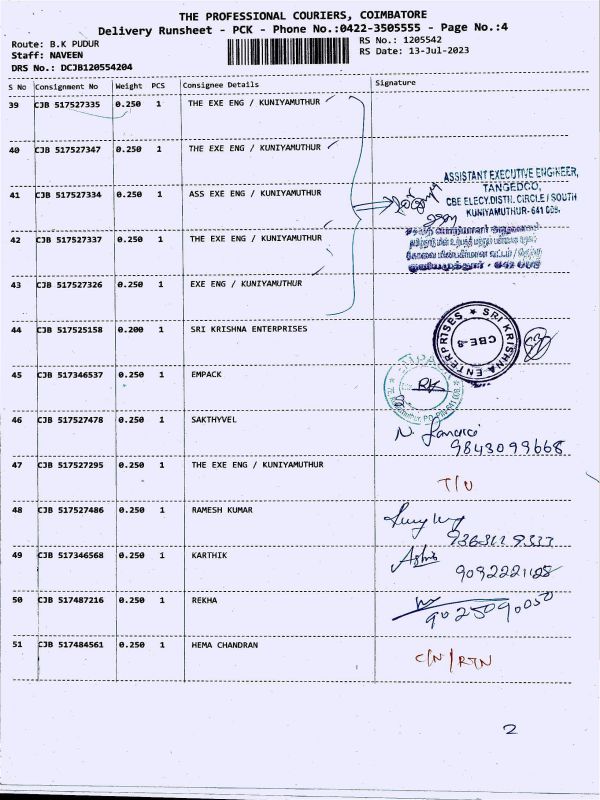 THE PROFESSIONAL COURIERS, COIMBATORE
Delivery Runsheet - PCK - Phone No.:0422-3505555 - Page No.:4
Route: B.K PUDUR
RS No.: 1205542
Staff: NAVEEN
RS Date: 13-Jul-2023
DRS No.: DCJB120554204
S No Consignment No Weight PCS Consignee Details Signature
39 CJB 517527335 0.250 1 THE EXE ENG / KUNIYAMUTHUR
40 CJB 517527347 0.250 1 THE EXE ENG / KUNIYAMUTHUR
ASSISTANT EXECUTIVE ENGINEER,
TANGEDCO,
41 CJB 517527334 0.250 1 ASS EXE ENG / KUNIYAMUTHUR
CBE ELECY.DISTN. CIRCLE / SOUTH
KUNIYAMUTHUR- 641 008.
42 CJB 517527337 0.250 1 THE EXE ENG / KUNIYAMUTHUR
43 CJB 517527326 0.250 1 EXE ENG / KUNIYAMUTHUR
44 CJB 517525158 0.200 1 SRI KRISHNA ENTERPRISES
SRI KRISHNA ENTERPRISES
CBE-8
45 CJB 517346537 0.250 1 EMPACK
RK
46 CJB 517527478 0.250 1 SAKTHYVEL
9843099668
47 CJB 517527295 0.250 1 THE EXE ENG / KUNIYAMUTHUR
T/U
48 CJB 517527486 0.250 1 RAMESH KUMAR
49 CJB 517346568 0.250 1 KARTHIK
50 CJB 517487216 0.250 1 REKHA
9025090050
51 CJB 517484561 0.250 1 HEMA CHANDRAN
C/N/RTN
2